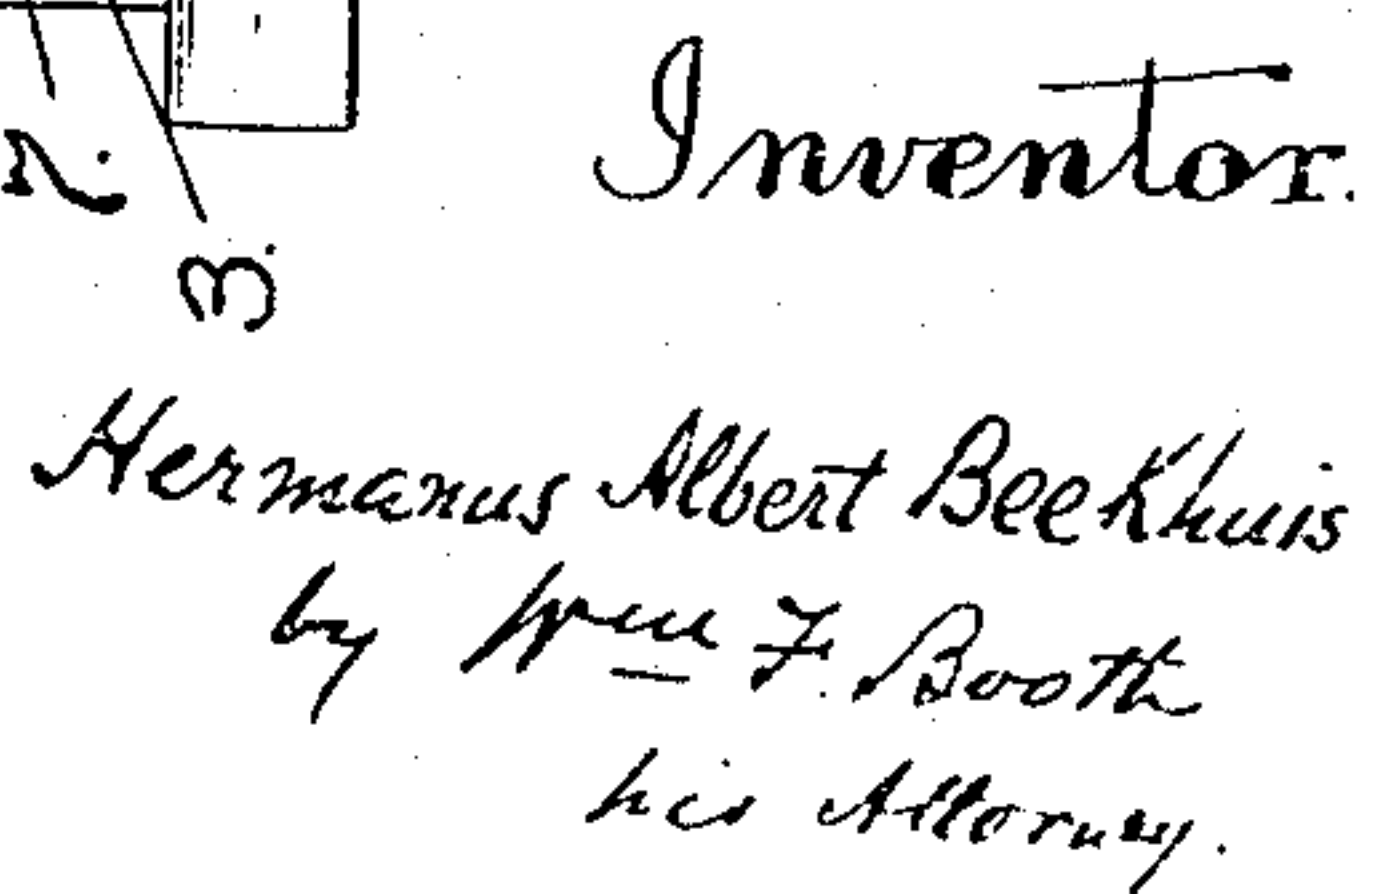 Inventor.
2.
3.
Hermanus Albert Beekhuis
by Wm F. Booth
his Attorney.